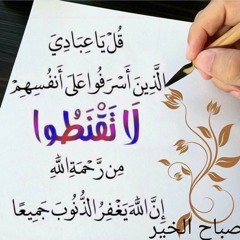 قُلْ يَا عِبَادِيَ
الَّذِينَ أَسْرَفُوا عَلَى أَنفُسِهِمْ
لَا تَقْنَطُوا
مِن رَّحْمَةِ اللهِ
إِنَّ اللهَ يَغْفِرُ الذُّنُوبَ جَمِيعًا
صباح الخير